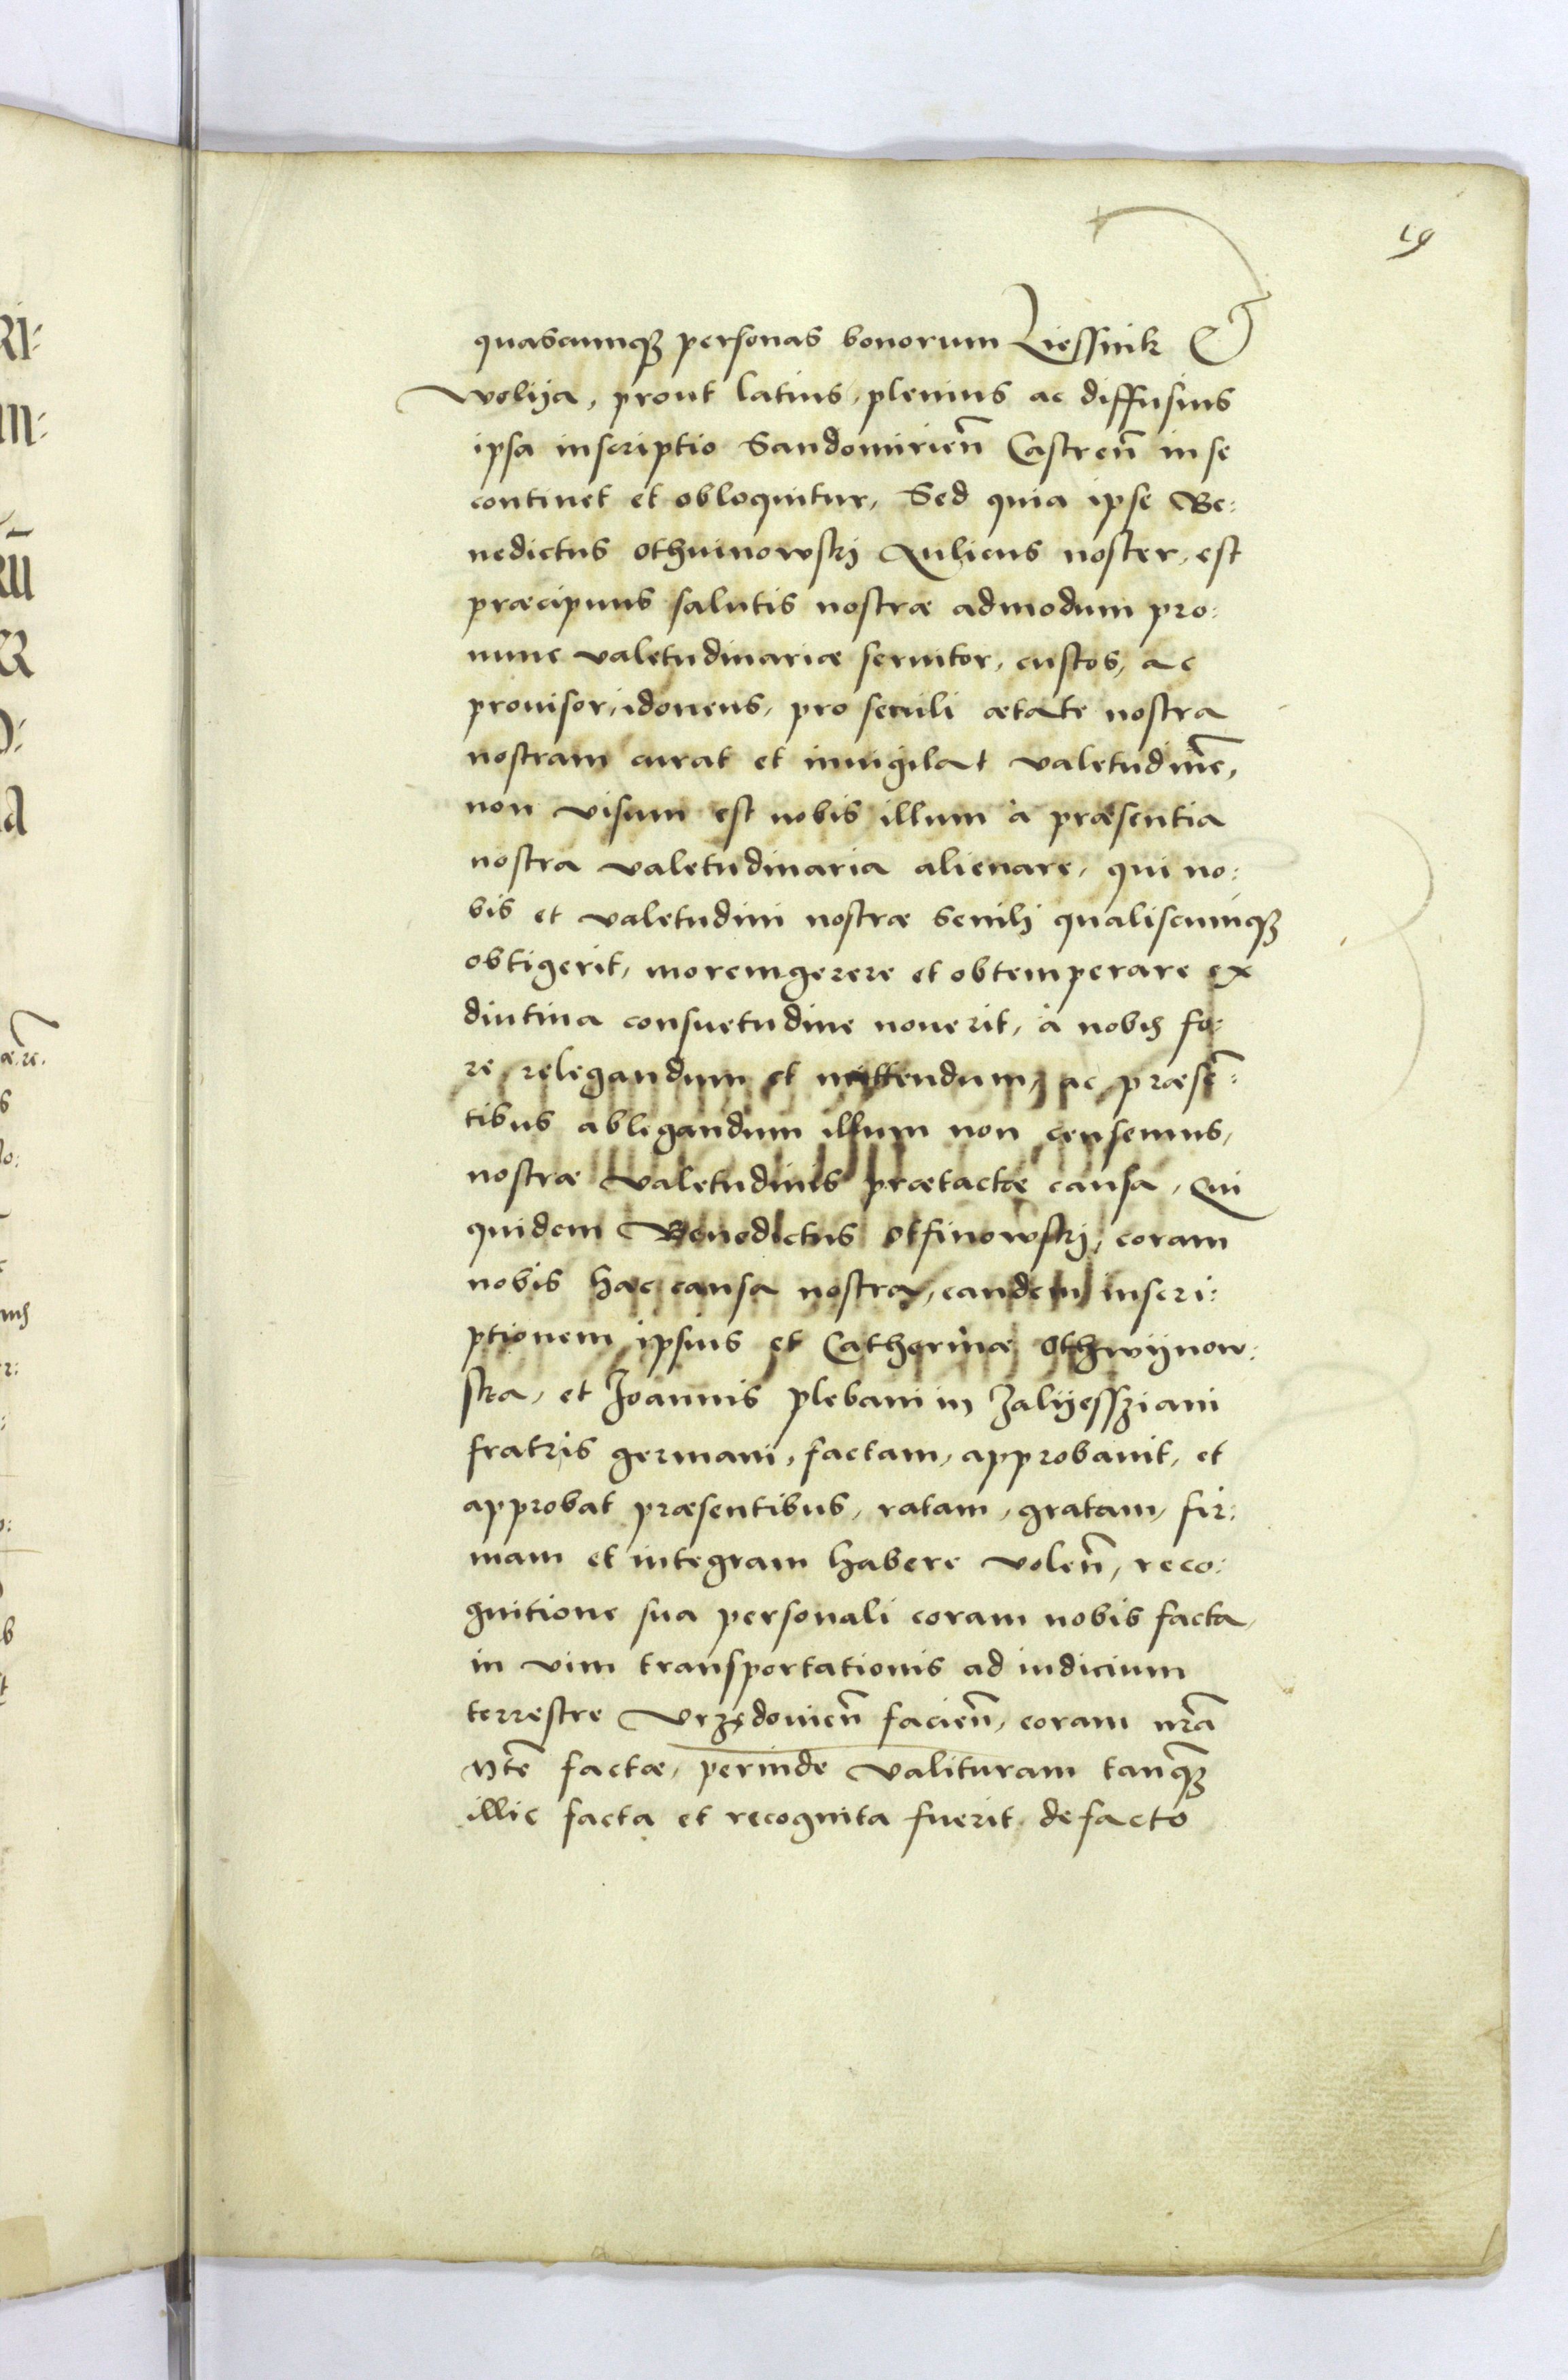 19
quascunqꝫ personas bonorum Liessnik &
Wolija, prout latius, plenius ac diffusius
ipsa inscriptio Sandomirien̄ Castren̄ in se
continet et obloquitur, Sed quia ipse Be:
nedictus Othuinowskj Aulicus noster, est
præcipuus salutis nostræ admodum pro:
nunc valetudinariæ seruitor, custos, ac
prouisor, idoneus, pro senili ætate nostra
nostram curat et inuigilat valetudinē,
non visum est nobis illum à præsentia
nostra valetudinaria alienare, qui no:
bis et valetudini nostræ senili qualiscunqꝫ
obtigerit, moremgerere et obtemperare ex
diutina consuetudine nouerit, à nobis fo:
re relegandum et mittendum, ac præsē:
tibus abligandum illum non censemus,
nostræ valetudinis prætactæ causa, Qui
quidem Benedictus Otfinowskj, coram
nobis hac causa nostra, eandem inscri:
ptionem ipsius et Catherinæ Othwijnow:
ska, et Joannis plebani in Zalijessziani
fratris germani, factam, approbauit, et
approbat præsentibus, ratam, gratam, fir:
mam et integram habere volen̄, reco:
gnitione sua personali coram nobis facta,
in vim transportationis ad iudicium
terrestre Vrzędouien̄ facien̄, coram nr̄a
Mte̅ factæ, perinde valituram tanqꝫ
illic facta et recognita fuerit de facto